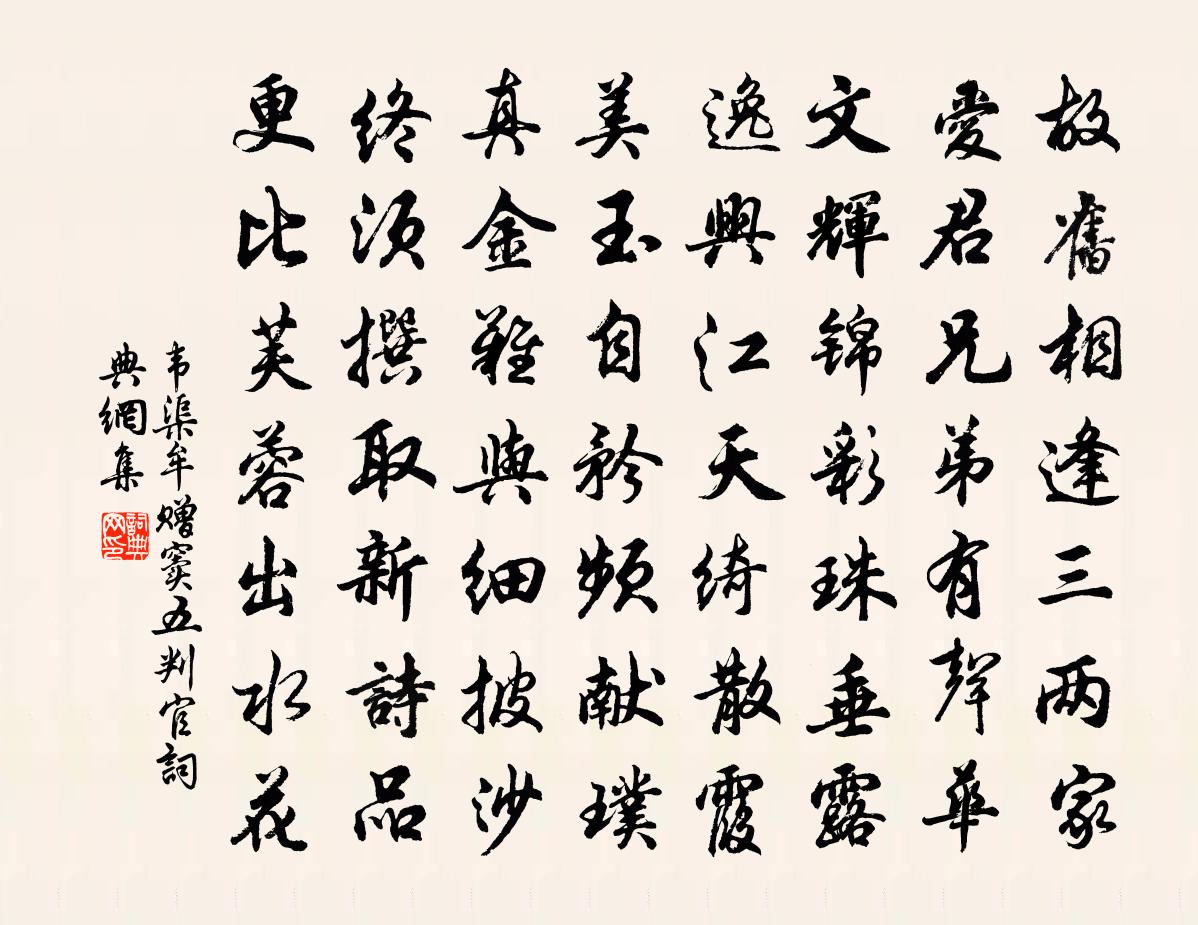 故舊相逢三两家
愛君兄弟有聲華
文輝錦彩珠垂露
逸興江天綺散霞
美玉自矜頻献璞
真金難與細披沙
終須撰取新詩品
更比芙蓉出水花
韦渠牟赠窦五判官詞
典網集
詞典
网印